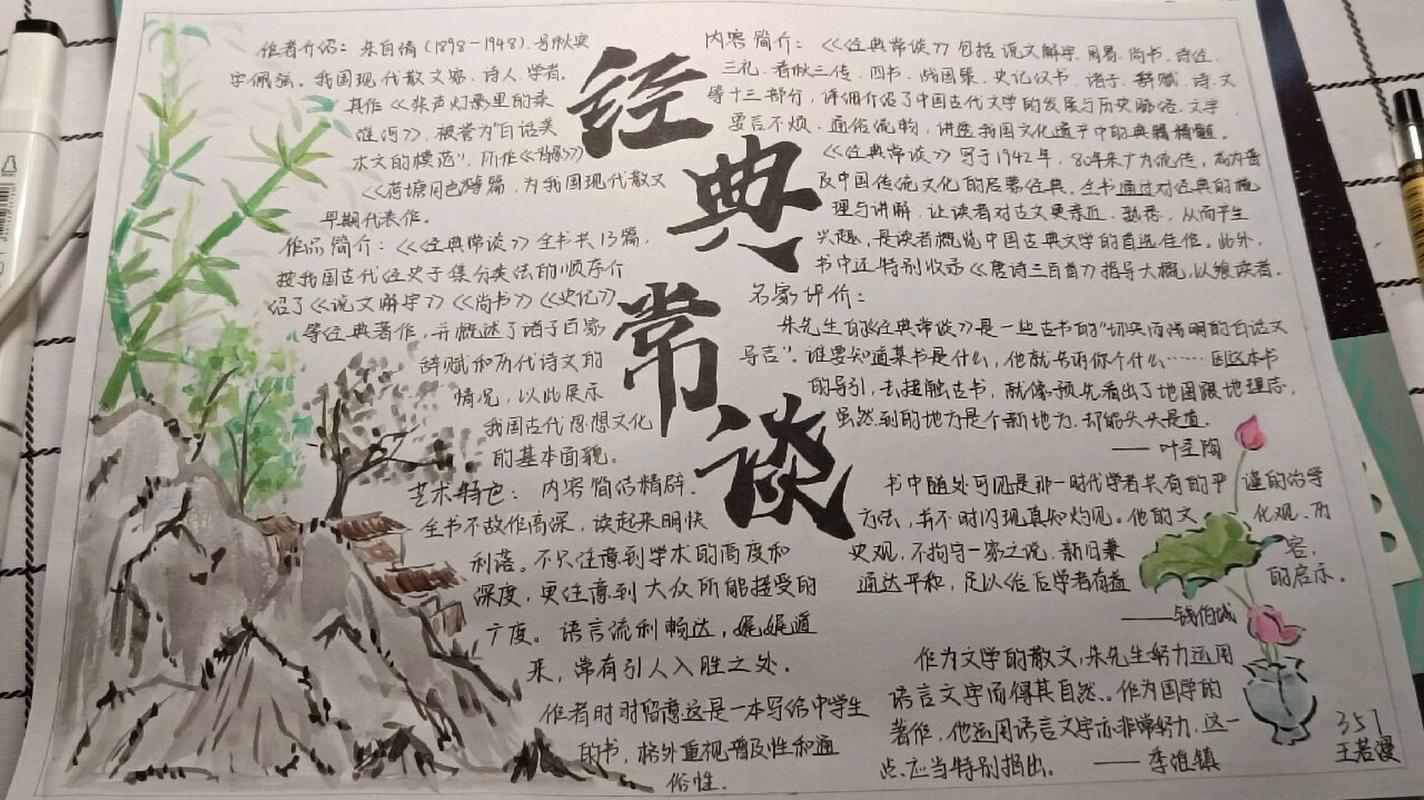 经典常谈
作者介绍：朱自清（1898-1948）.号秋实
字佩弦。我国现代散文家.诗人.学者.
其作《桨声灯影里的秦
淮河》，被誉为"白话美
术文的模范"，所作《背影》
《荷塘月色》等篇，为我国现代散文
早期代表作。
作品简介：《经典常谈》全书共13篇，
按我国古代经史子集分类法的顺序介
绍了《说文解字》《尚书》《史记》
等经典著作，并概述了诸子百家
辞赋和历代诗文的
情况，以此展示
我国古代思想文化
的基本面貌。
艺术特色：内容简洁精辟.
全书不故作高深，读起来明快
利落。不只注意到学术的高度和
深度，更注意到大众所能接受的
广度。语言流利畅达，娓娓道
来，常有引人入胜之处.
作者时时留意这是一本写给中学生
的书，格外重视普及性和通
俗性.
内容简介：《经典常谈》包括说文解字.周易.尚书.诗经.
三礼.春秋三传.四书.战国策.史记汉书.诸子.辞赋.诗.文
等十三部分，详细介绍了中国古代文学的发展与历史脉络.文字
要言不烦.通俗流畅，讲述我国文化遗产中的典籍精髓.
《经典常谈》写于1942年，80年来广为流传，成为普
及中国传统文化的启蒙经典.全书通过对经典的梳
理与讲解，让读者对古文更亲近.熟悉，从而产生
兴趣，是读者概览中国古典文学的首选佳作。此外，
书中还特别收录《唐诗三百首》指导大概，以飨读者.
名家评价：
朱先生的《经典常谈》是一些古书的"切实而浅明的白话文
导言"。谁要知道某书是什么，他就告诉你个什么……因这本书
的导引，去接触古书，就像预先看出了地图跟地理志，
虽然到的地方是个新地方，却能头头是道.
——叶圣陶
书中随处可见是那一时代学者共有的平 谨的治学
方法，并不时闪现真知灼见。他的文 化观.历
史观，不拘守一家之说，新旧兼 容，
通达平和，足以给后学者有益 的启示.
——钱伯城
作为文学的散文，朱先生努力运用
语言文字而得其自然.。作为国学的
著作，他运用语言文字亦非常努力，这一
点.应当特别指出。——季镇淮
351
王若漫